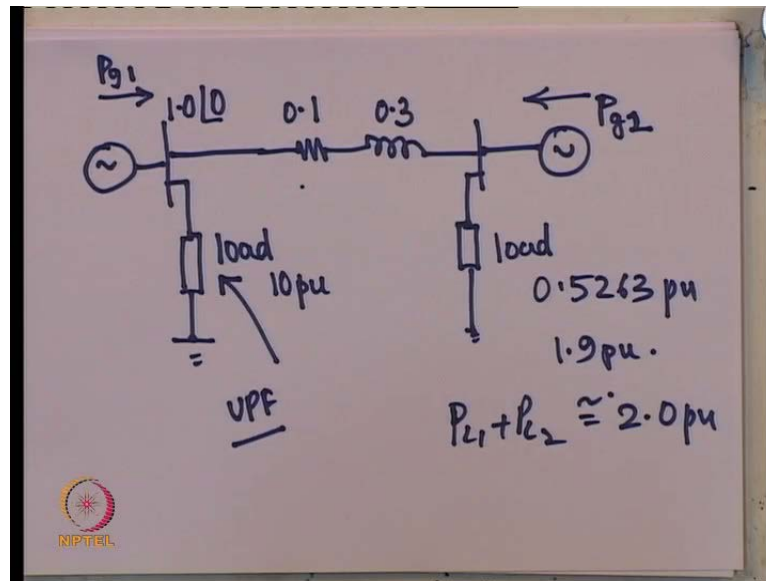 Pg1
1.0∠0 0.1 0.3
Pg2
load
10 pu
load
0.5263 pu
1.9 pu.
UPF
PL1 + PL2 ≅ 2.0 pu
NPTEL